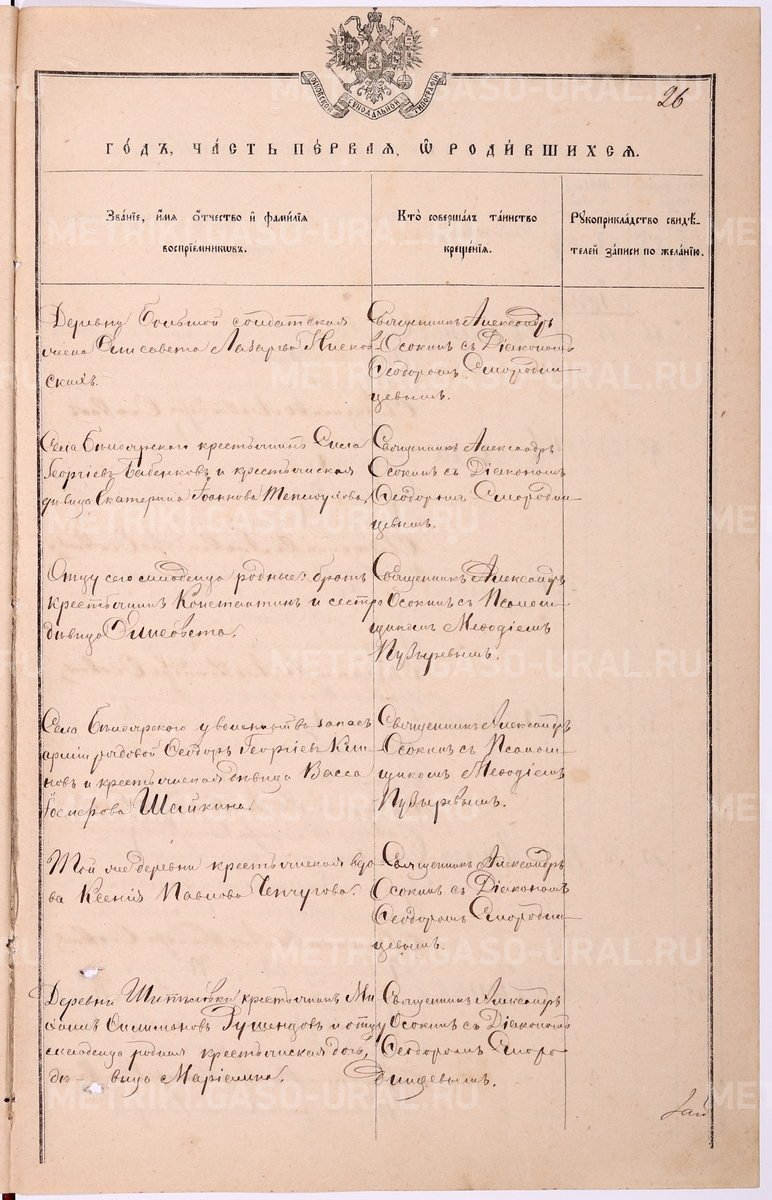 МОСКОВСКОЙ СѴНОДАЛЬНОЙ ТИПОГРАФІИ
26
ГО́ДЪ, ЧА́СТЬ ПЕ́РВАЯ, Ѡ҆ РОДИ́ВШИХСЯ.
Зва́нїе, и҆́мя ѻ҆́тчество и҆ фамѝлїя
воспрїе́мникωвъ.
Кто̀ соверша́лъ та́инство
креще́нїя.
Рꙋкоприкла́дство свидѣ́-
телей за́писи по жела́нїю.
Деревни Большой солдатская
жена Елисавета Лазарева
скихъ.
Священникъ Александръ
Осокинъ съ Діакономъ
Ѳеодоромъ Смородин-
цевымъ.
Села Бѣлоярскаго крестьянинъ Сила
Георгіевъ Бабенковъ и крестьянская
дѣвица Екатерина Іоаннова Теплоухова.
Священникъ Александръ
Осокинъ съ Діакономъ
Ѳеодоромъ Смородин-
цевымъ.
Отцу сего младенца родные: братъ
крестьянинъ Константинъ и сестра
дѣвица Елисавета.
Священникъ Александръ
Осокинъ съ Псалом-
щикомъ Меѳодіемъ
Пузыревымъ.
Села Бѣлоярскаго уволенный въ запасъ
арміи рядовой Ѳеодоръ Георгіевъ
новъ и крестьянская дѣвица Васса
Шейкина.
Священникъ Александръ
Осокинъ съ Псалом-
щикомъ Меѳодіемъ
Пузыревымъ.
Той же деревни крестьянская вдо-
ва Ксенія Павлова Чепчугова.
Священникъ Александръ
Осокинъ съ Діакономъ
Ѳеодоромъ Смородин-
цевымъ.
Деревни Шипиловки крестьянинъ Ми-
хаилъ и отцу
младенца родная крестьянская дочь,
дѣ- вица Маріамна.
Священникъ Александръ
Осокинъ съ Діакономъ
Ѳеодоромъ Сморо-
динцевымъ.
METRIKI.GASO-URAL.RU